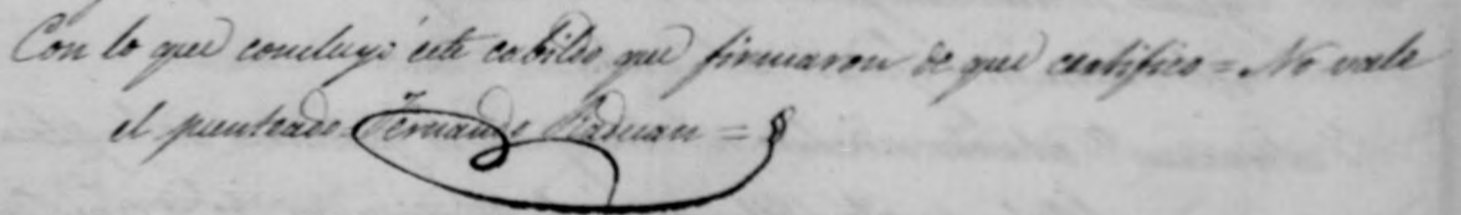 Con lo que concluyó este cabildo que firmaron de que certifico = No vale
el punteado = Fernando Paduan =